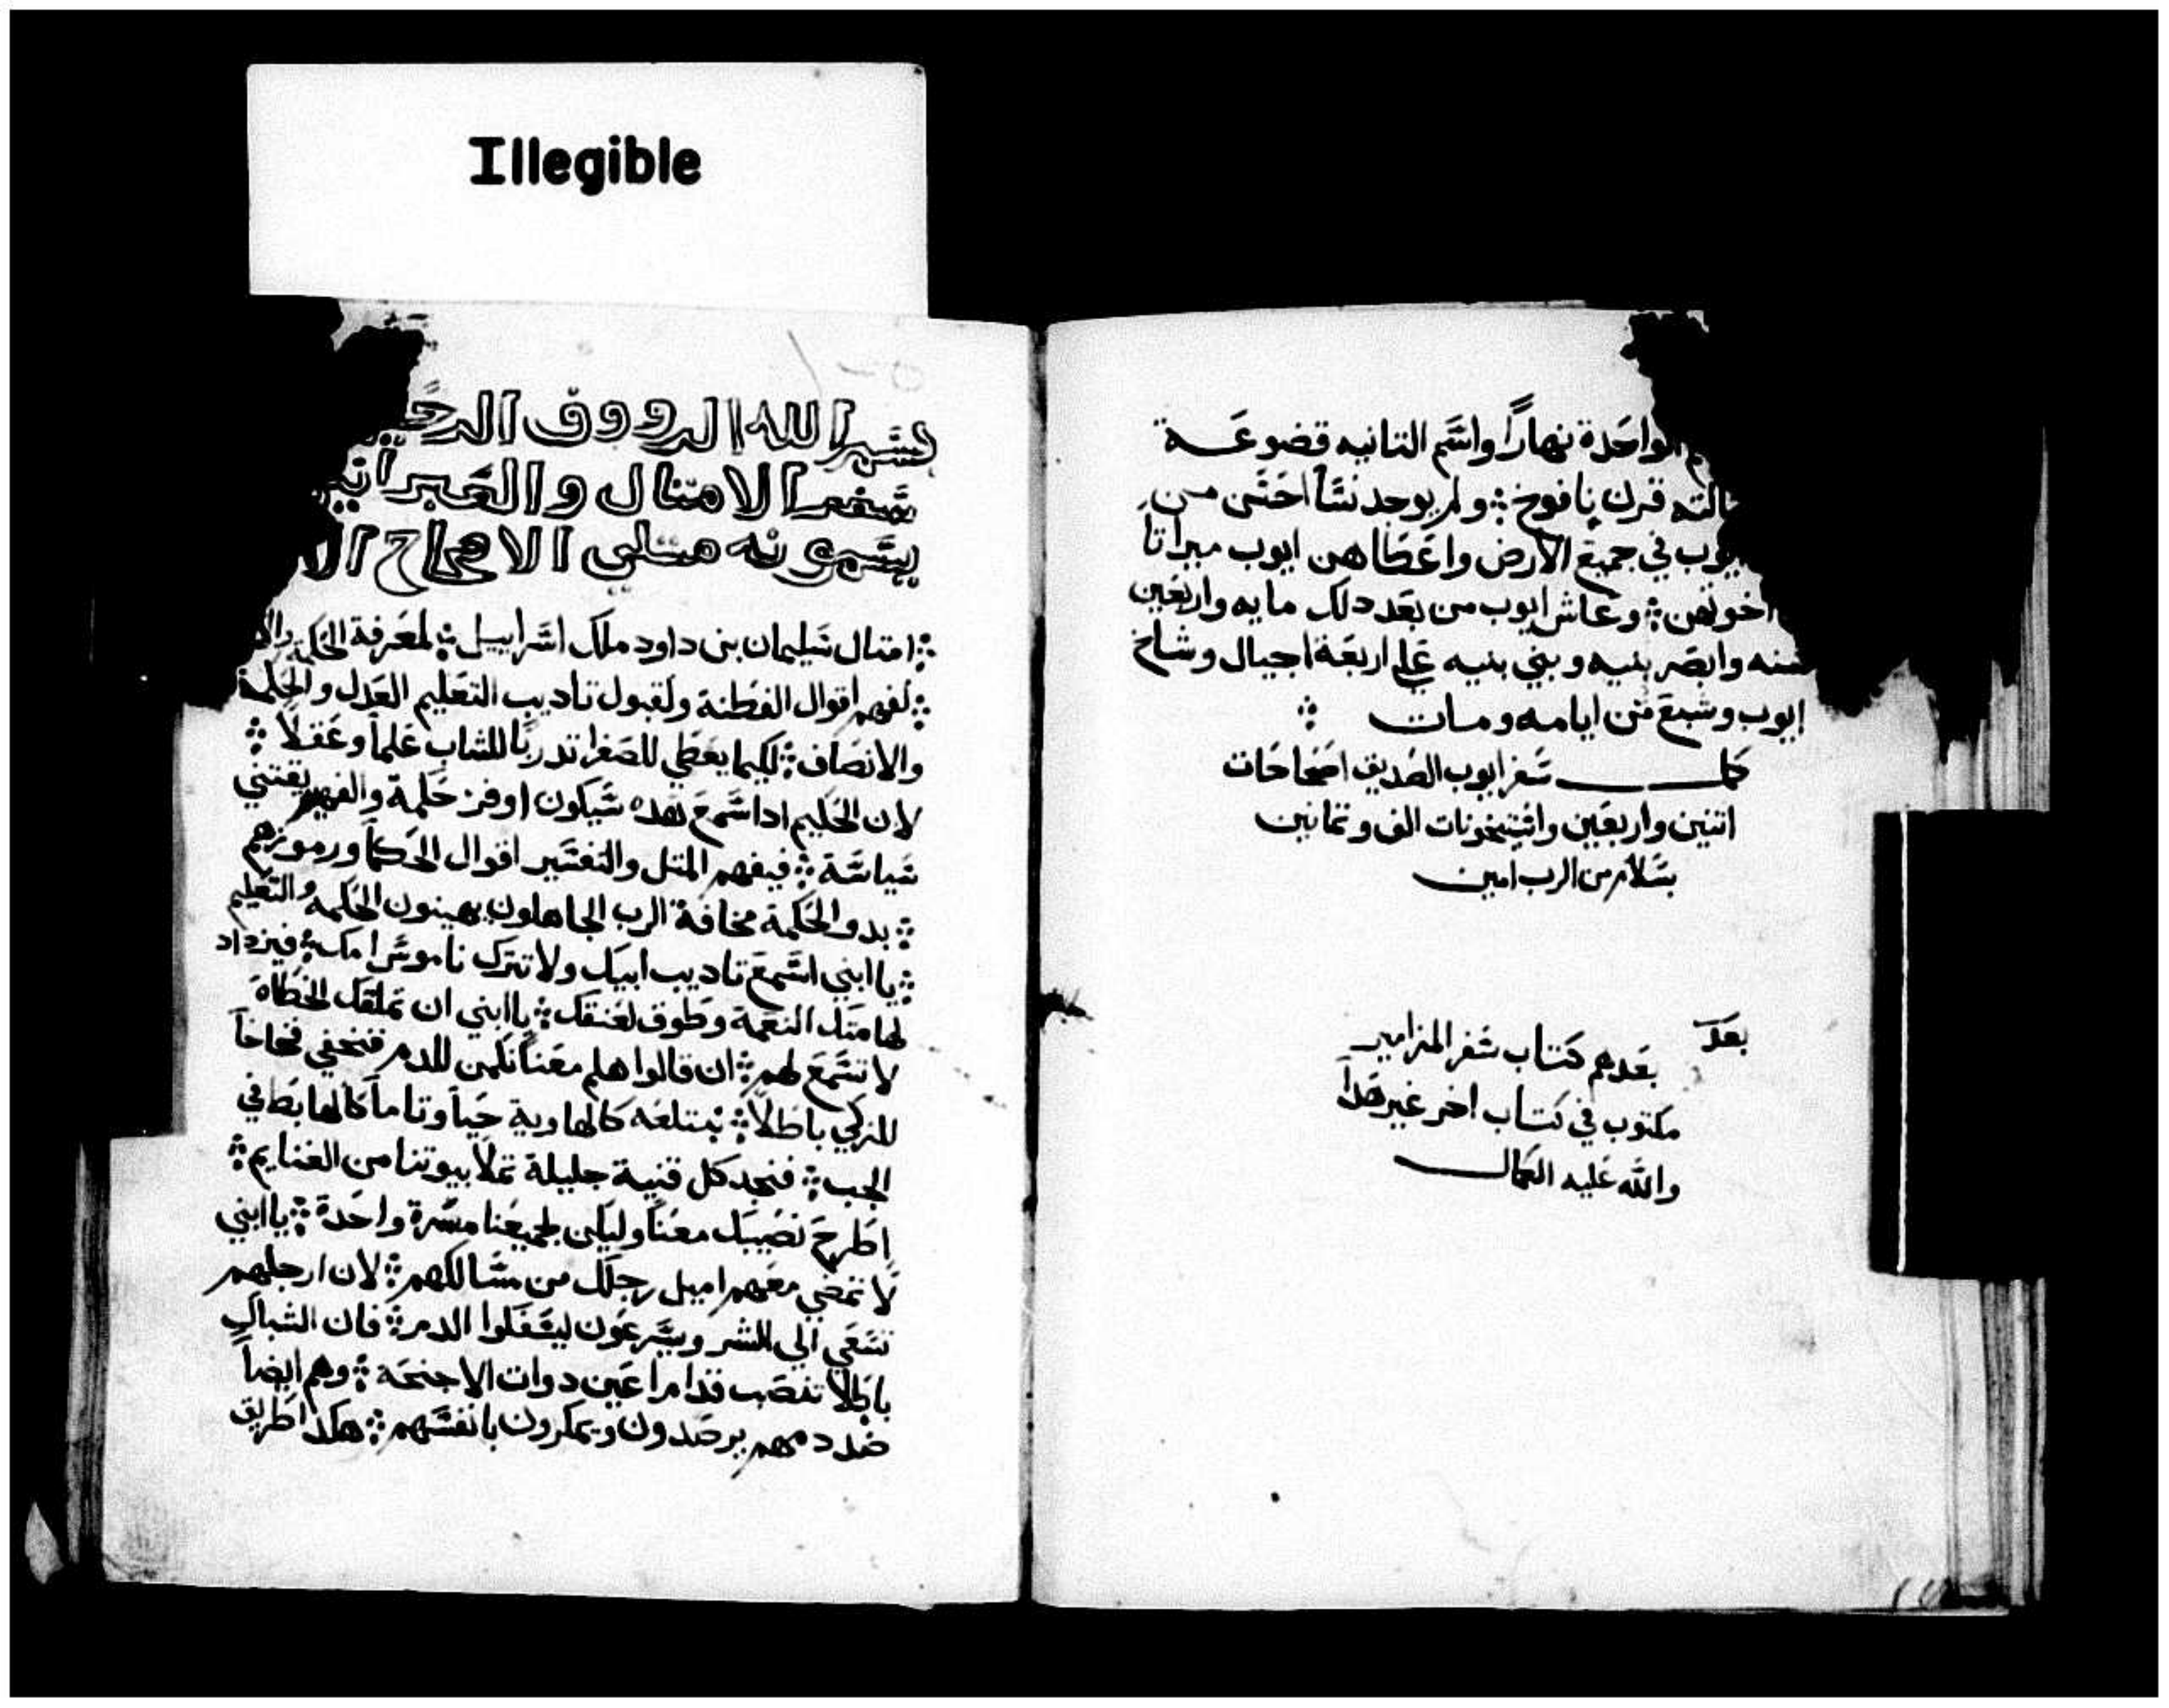 Illegible
الواحدة نهاراً واسم التانيه قضوعـــة
التالته قرن يافوخ ܀ ولم يوجد نسآ احسَن مـن
ايوب في جميع الارض واعطاهن ايوب ميراتاً
اخوتهن ܀ وعاش ايوب من بعد دلك مايه واربعين
سنه وابصر بنيه وبني بنيه علي اربعة اجيال وشاخ
ايوب وشبع من ايامه ومـات ܀
كمل سفر ايوب الصديق اصحاحات
اتنين واربعين واستيخونات الف وتمانين
بسلام من الرب امين
بعد
بعدهم كتاب سفر المزامير
مكتوب في كتاب اخر غير هدا
والله عليه الكمال
بسم الله الرووف الرحيم
سفر الامتال والعبرانيين
يسمونه متلي الاصحاح الا
܀ امتال سليمان بن داود ملك اسراييل ܀ لمعرفة الحكمه والاد
܀ لفهم اقوال الفطنة ولقبول تاديب التعليم العدل والحكمة
والانصاف ܀ لكيما يعطي للصغرا تدرباً للشاب علماً وعقلاً ܀
لان الحكيم ادا سمع هده سيكون اوفر حكمة والفهيم يقتني
سياسة ܀ فيفهم المتل والتفسير اقوال الحكمآ ورموزهم
܀ بدو الحكمة مخافة الرب الجاهلون يهينون الحكمه والتعليم
܀ يا ابني اسمع تاديب ابيك ولا تترك ناموس امك ܀ فيزداد
لهامتك النعمة وطوق لعنقك ܀ يا ابني ان تملقك الخطاه
لا تسمع لهم ܀ ان قالوا هلم معنا نكمن للدم فنخفي فخاخاً
للزكي باطلاً ܀ نبتلعه كالهاوية حياً وتاماً كالهابط في
الجب ܀ فنجد كل قنية جليلة تملا بيوتنا من الغنايم ܀
اطرح نصيبك معنا وليكن لجميعنا مسرة واحدة ܀ يا ابني
لا تمضي معهم اميل رجلك من مسالكهم ܀ لان ارجلهم
تسعي الي الشر ويسرعون ليسفكوا الدم ܀ فان الشباك
باطلا تنصب قدام اعين دوات الاجنحة ܀ وهم ايضاً
ضد دمهم يرصدون ويمكرون بانفسهم ܀ هكدا طريق